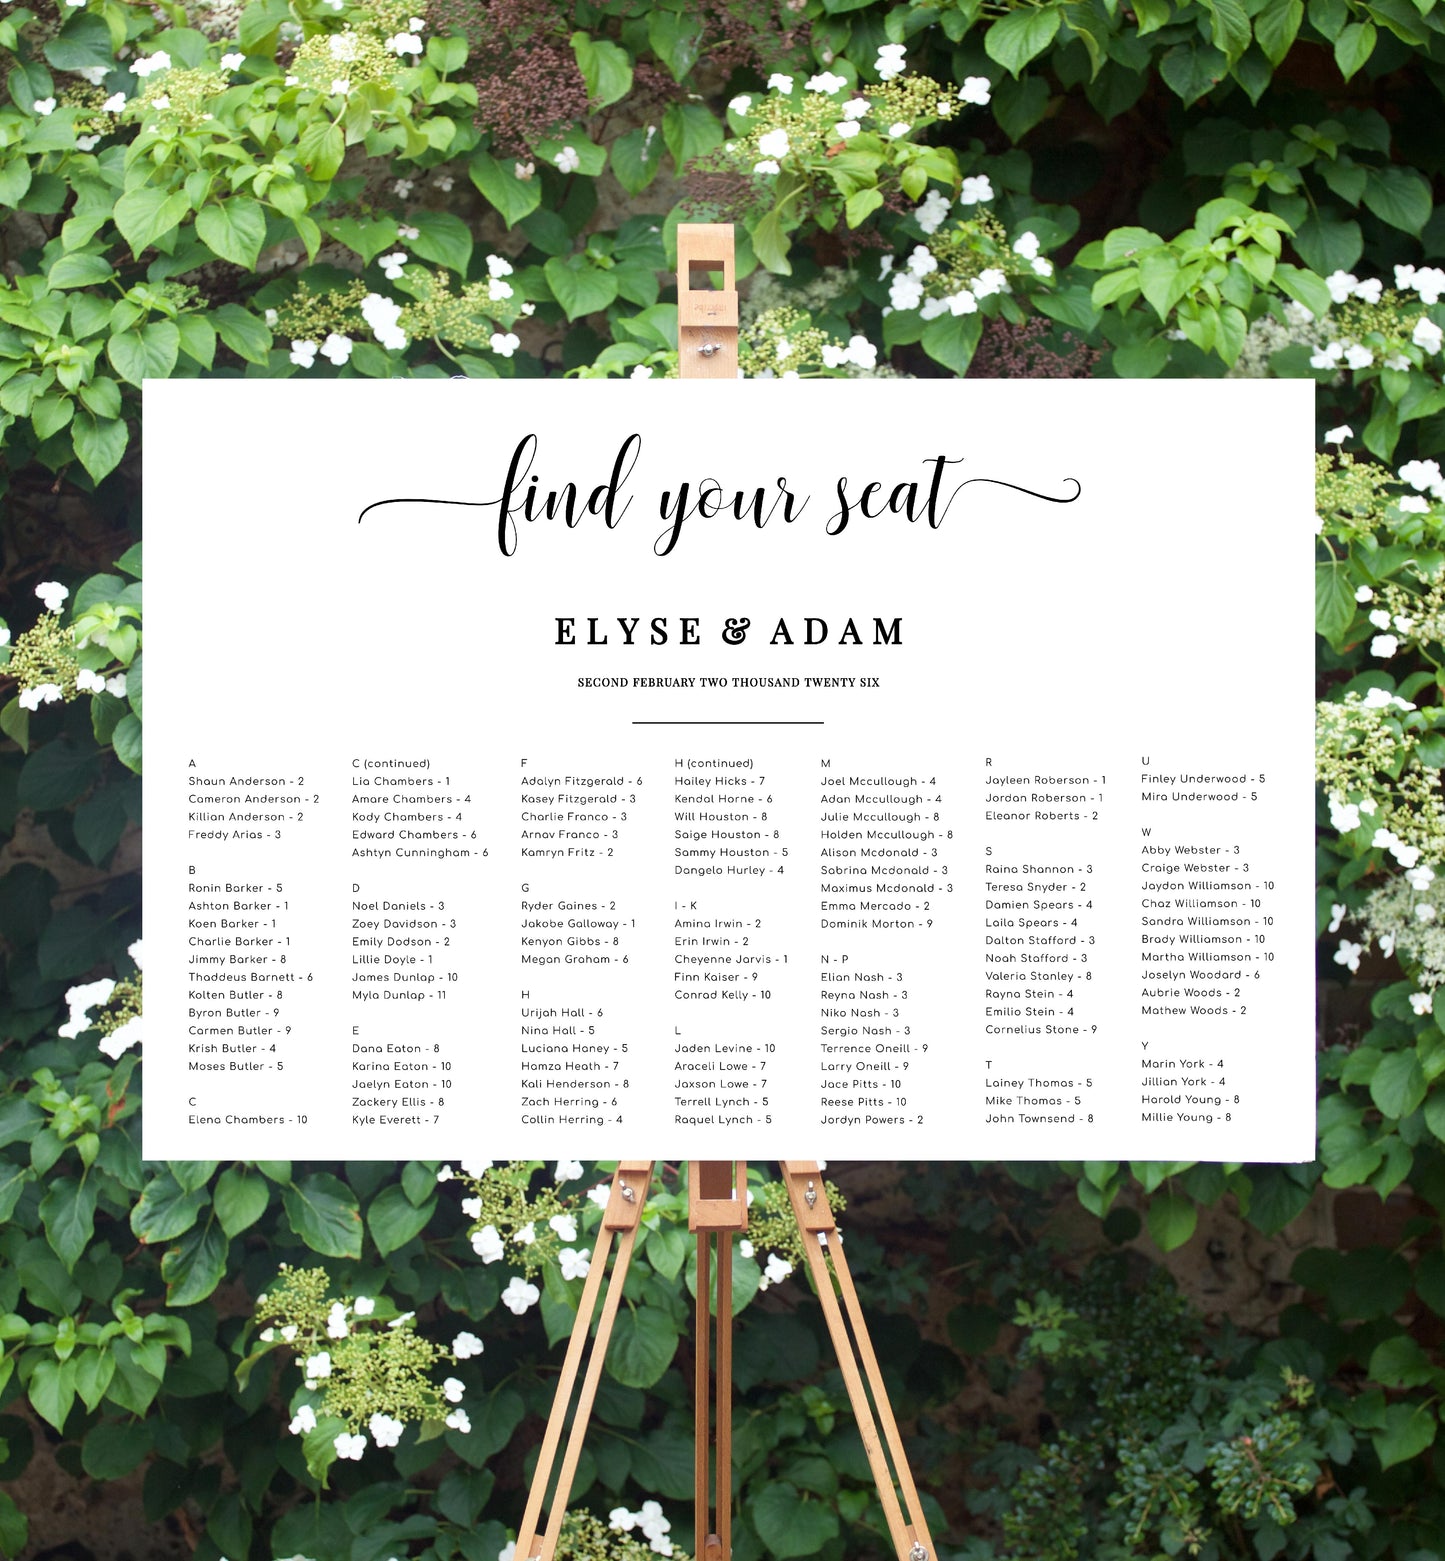 find your seat
ELYSE & ADAM
SECOND FEBRUARY TWO THOUSAND TWENTY SIX
A
Shaun Anderson - 2
Cameron Anderson - 2
Killian Anderson - 2
Freddy Arias - 3
B
Ronin Barker - 5
Ashton Barker - 1
Koen Barker - 1
Charlie Barker - 1
Jimmy Barker - 8
Thaddeus Barnett - 6
Kolten Butler - 8
Byron Butler - 9
Carmen Butler - 9
Krish Butler - 4
Moses Butler - 5
C
Elena Chambers - 10
C (continued)
Lia Chambers - 1
Amare Chambers - 4
Kody Chambers - 4
Edward Chambers - 6
Ashtyn Cunningham - 6
D
Noel Daniels - 3
Zoey Davidson - 3
Emily Dodson - 2
Lillie Doyle - 1
James Dunlap - 10
Myla Dunlap - 11
E
Dana Eaton - 8
Karina Eaton - 10
Jaelyn Eaton - 10
Zackery Ellis - 8
Kyle Everett - 7
F
Adalyn Fitzgerald - 6
Kasey Fitzgerald - 3
Charlie Franco - 3
Arnav Franco - 3
Kamryn Fritz - 2
G
Ryder Gaines - 2
Jakobe Galloway - 1
Kenyon Gibbs - 8
Megan Graham - 6
H
Urijah Hall - 6
Nina Hall - 5
Luciana Haney - 5
Hamza Heath - 7
Kali Henderson - 8
Zach Herring - 6
Collin Herring - 4
H (continued)
Hailey Hicks - 7
Kendal Horne - 6
Will Houston - 8
Saige Houston - 8
Sammy Houston - 5
Dangelo Hurley - 4
I - K
Amina Irwin - 2
Erin Irwin - 2
Cheyenne Jarvis - 1
Finn Kaiser - 9
Conrad Kelly - 10
L
Jaden Levine - 10
Araceli Lowe - 7
Jaxson Lowe - 7
Terrell Lynch - 5
Raquel Lynch - 5
M
Joel Mccullough - 4
Adan Mccullough - 4
Julie Mccullough - 8
Holden Mccullough - 8
Alison Mcdonald - 3
Sabrina Mcdonald - 3
Maximus Mcdonald - 3
Emma Mercado - 2
Dominik Morton - 9
N - P
Elian Nash - 3
Reyna Nash - 3
Niko Nash - 3
Sergio Nash - 3
Terrence Oneill - 9
Larry Oneill - 9
Jace Pitts - 10
Reese Pitts - 10
Jordyn Powers - 2
R
Jayleen Roberson - 1
Jordan Roberson - 1
Eleanor Roberts - 2
S
Raina Shannon - 3
Teresa Snyder - 2
Damien Spears - 4
Laila Spears - 4
Dalton Stafford - 3
Noah Stafford - 3
Valeria Stanley - 8
Rayna Stein - 4
Emilio Stein - 4
Cornelius Stone - 9
T
Lainey Thomas - 5
Mike Thomas - 5
John Townsend - 8
U
Finley Underwood - 5
Mira Underwood - 5
W
Abby Webster - 3
Craige Webster - 3
Jaydon Williamson - 10
Chaz Williamson - 10
Sandra Williamson - 10
Brady Williamson - 10
Martha Williamson - 10
Joselyn Woodard - 6
Aubrie Woods - 2
Mathew Woods - 2
Y
Marin York - 4
Jillian York - 4
Harold Young - 8
Millie Young - 8